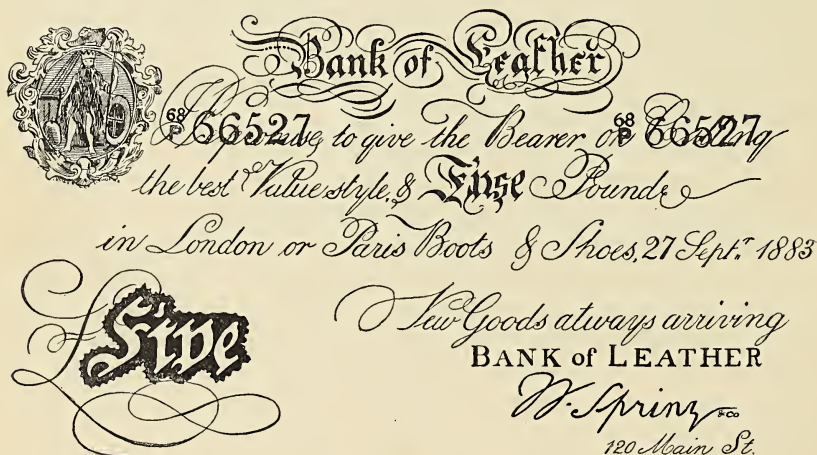 Bank of Leather
68
P 66527 68
P 66527
promise to give the Bearer on
the best Value style, & Pounds
in London or Paris Boots & Shoes, 27 Septr. 1883
£Five
New Goods always arriving
BANK of LEATHER
W. Spring &CO
120 Main St.